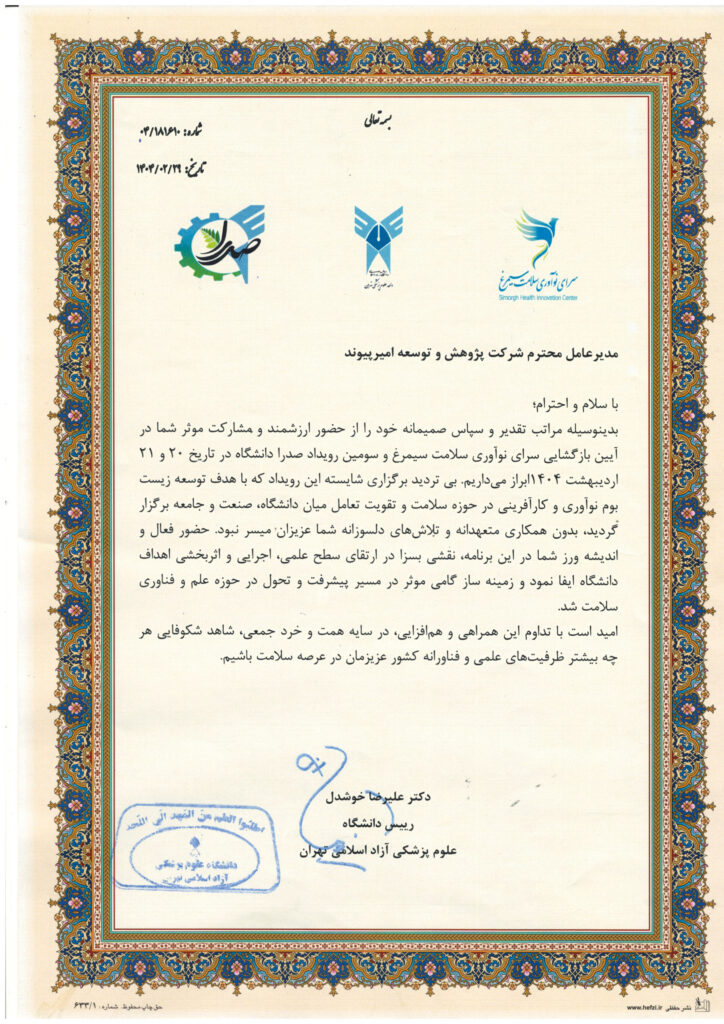 بسمه تعالی
شماره: ۰۴/۱۸۱۶۱۰
تاریخ: ۱۴۰۴/۰۲/۲۹
صدرا
سرای نوآوری سلامت سیمرغ
Simorgh Health Innovation Center
مدیرعامل محترم شرکت پژوهش و توسعه امیرپیوند
با سلام و احترام؛
بدینوسیله مراتب تقدیر و سپاس صمیمانه خود را از حضور ارزشمند و مشارکت موثر شما در
آیین بازگشایی سرای نوآوری سلامت سیمرغ و سومین رویداد صدرا دانشگاه در تاریخ ۲۰ و ۲۱
اردیبهشت ۱۴۰۴ابراز می‌داریم. بی تردید برگزاری شایسته این رویداد که با هدف توسعه زیست
بوم نوآوری و کارآفرینی در حوزه سلامت و تقویت تعامل میان دانشگاه، صنعت و جامعه برگزار
گردید، بدون همکاری متعهدانه و تلاش‌های دلسوزانه شما عزیزان میسر نبود. حضور فعال و
اندیشه ورز شما در این برنامه، نقشی بسزا در ارتقای سطح علمی، اجرایی و اثربخشی اهداف
دانشگاه ایفا نمود و زمینه ساز گامی موثر در مسیر پیشرفت و تحول در حوزه علم و فناوری
سلامت شد.
امید است با تداوم این همراهی و هم‌افزایی، در سایه همت و خرد جمعی، شاهد شکوفایی هر
چه بیشتر ظرفیت‌های علمی و فناورانه کشور عزیزمان در عرصه سلامت باشیم.
دکتر علیرضا خوشدل
رییس دانشگاه
علوم پزشکی آزاد اسلامی تهران
اطلبوا العلم من المهد الی اللحد
دانشگاه علوم پزشکی
آزاد اسلامی تهران
حق چاپ محفوظ. شماره: ۶۳۳/۱
www.hefzi.ir نشر حفظی